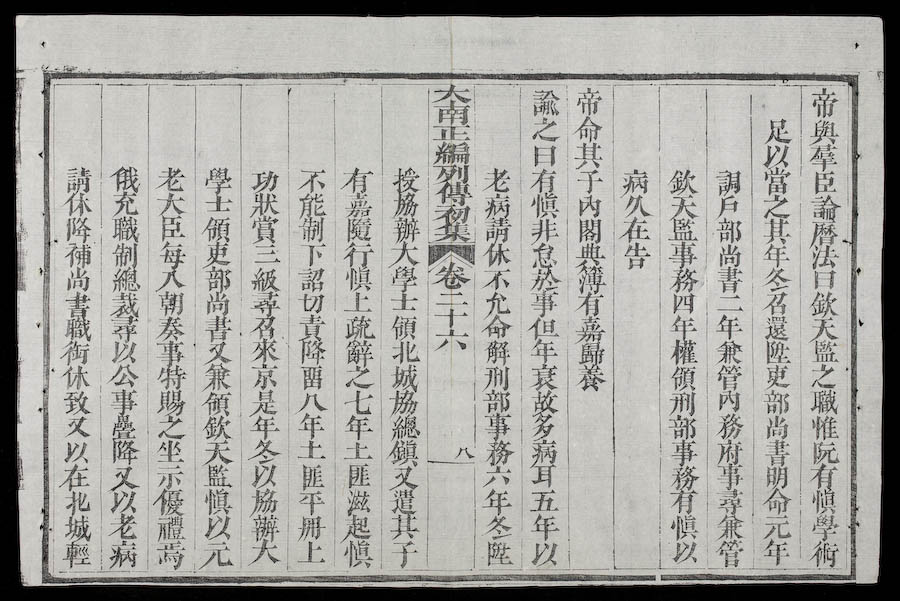 帝與羣臣論曆法曰欽天監之職惟阮有慎學術
足以當之其年冬召還陞吏部尚書明命元年
調戶部尚書二年兼管內務府事尋兼管
欽天監事務四年權領刑部事務有慎以
病久在告
帝命其子內閣典簿有嘉歸養
諭之曰有慎非怠於事但年衰故多病耳五年以
老病請休不允命解刑部事務六年冬陞
大南正編列傳初集 卷二十六 八
授協辦大學士領北城協總鎮又遣其子
有嘉隨行慎上疏辭之七年土匪滋起慎
不能制下詔切責降畱八年土匪平冊上
功狀賞三級尋召來京是年冬以協辦大
學士領吏部尚書又兼領欽天監慎以元
老大臣每入朝奏事特賜之坐示優禮焉
俄充職制總裁尋以公事疊降又以老病
請休降補尚書職銜休致又以在北城輕